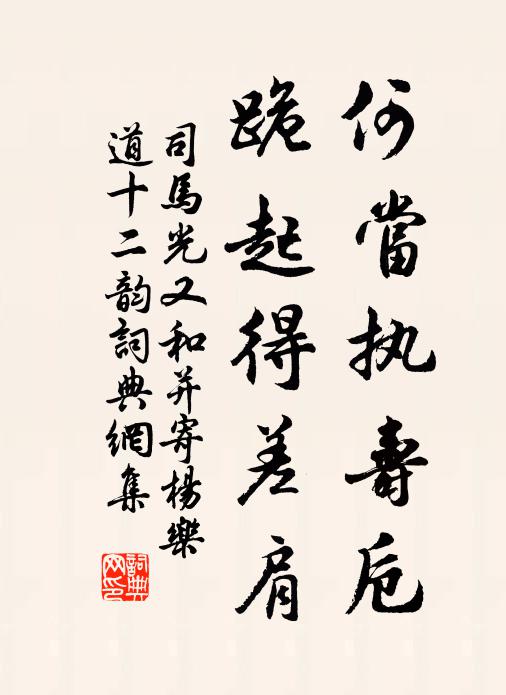 何當执壽卮
跪起得差肩
司馬光又和并寄楊樂
道十二韵詞典網集
詞典網印